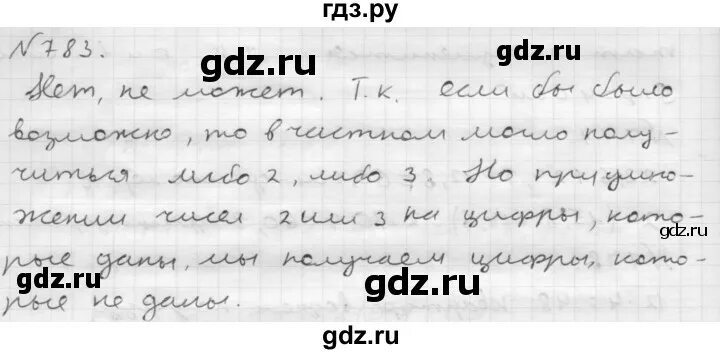 гдз.ру
N783.
gdz.ru
gdz.ru
Нет, не может. Т.к. если бы было
возможно, то в частном могло полу-
gdz.ru
читься либо 2, либо 3 Но при умно-
жении чисел 2 или 3 на цифры, кото-
gdz.ru
рые даны, мы получаем цифры, кото-
gdz.ru
gdz.ru
рые не даны.
gdz.ru